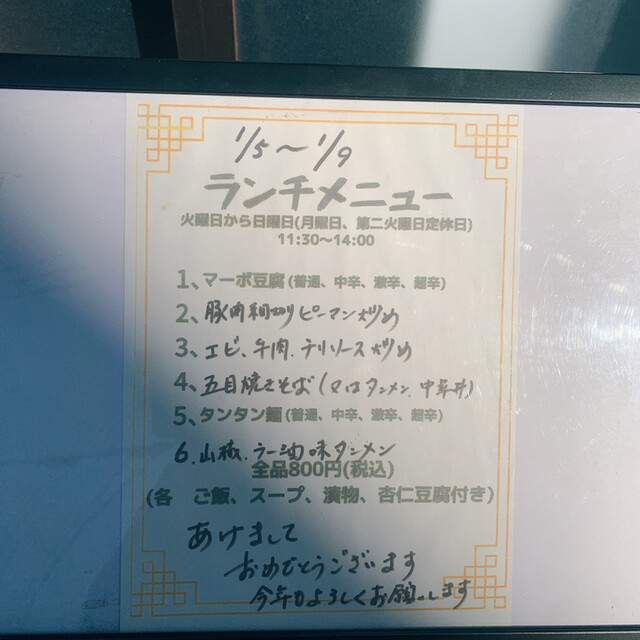 1/5〜1/9
ランチメニュー
火曜日から日曜日(月曜日、第二火曜日定休日)
11:30〜14:00
1、マーボ豆腐(普通、中辛、激辛、超辛)
2、豚肉細切りピーマン炒め
3、エビ、牛肉、チリソース炒め
4、五目焼そば(マーロタンメン、中華丼)
5、タンタン麺(普通、中辛、激辛、超辛)
6、山椒、ラー油味タンメン
全品800円(税込)
(各 ご飯、スープ、漬物、杏仁豆腐付き)
あけまして
おめでとうございます
今年もよろしくお願いします